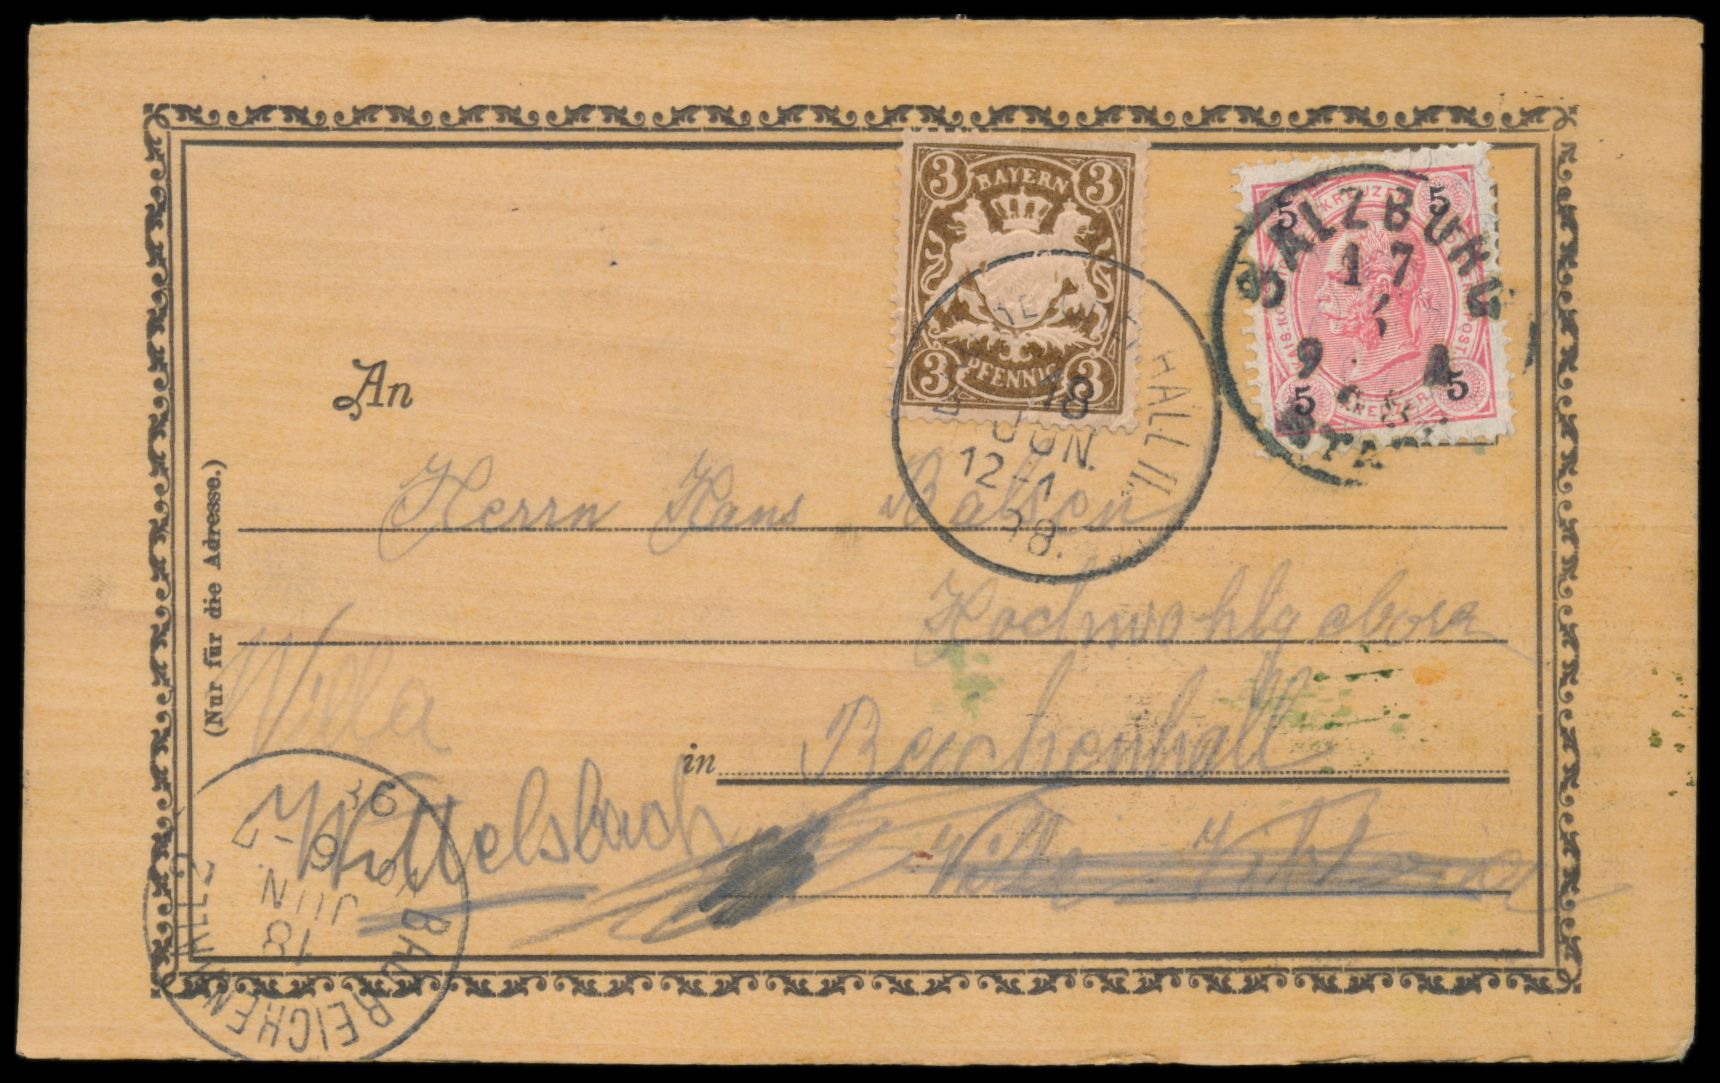 3 BAYERN 3
3 PFENNIG 3
5 5
KREUZER
5 5
SALZBURG
17
9
STADT
HALL II.
18
JUN.
12-1
98.
An
Herrn Hans Balsen
Hochwohlgeboren
(Nur für die Adresse.)
Villa
in Reichenhall
Wittelsbach
Villa Viktoria
BAD REICHENHALL 2
18
JUN.
6-7